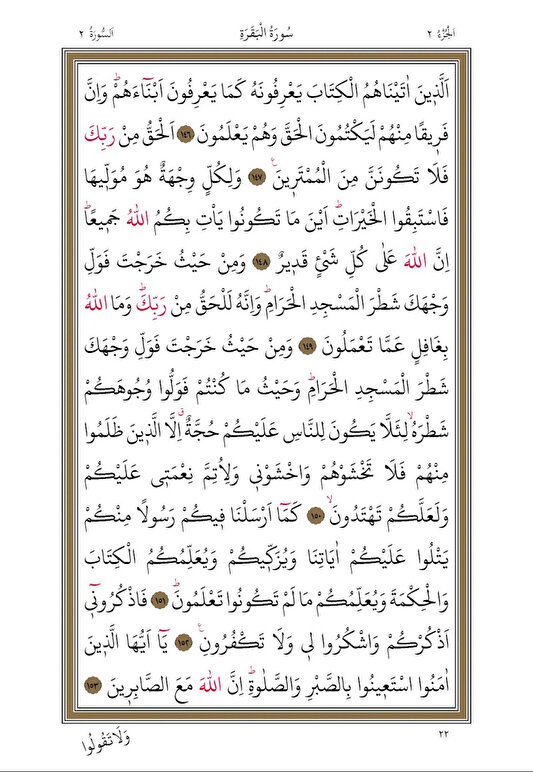 اَلْجُزْءُ ٢ سُورَةُ الْبَقَرَةِ اَلسُّورَةُ ٢
اَلَّذ۪ينَ اٰتَيْنَاهُمُ الْكِتَابَ يَعْرِفُونَهُ كَمَا يَعْرِفُونَ اَبْنَٓاءَهُمْۜ وَاِنَّ
فَر۪يقًا مِنْهُمْ لَيَكْتُمُونَ الْحَقَّ وَهُمْ يَعْلَمُونَ ﴿١٤٦﴾ اَلْحَقُّ مِنْ رَبِّكَ
فَلَا تَكُونَنَّ مِنَ الْمُمْتَر۪ينَ۟ ﴿١٤٧﴾ وَلِكُلٍّ وِجْهَةٌ هُوَ مُوَلّ۪يهَا
فَاسْتَبِقُوا الْخَيْرَاتِۜ اَيْنَ مَا تَكُونُوا يَأْتِ بِكُمُ اللّٰهُ جَم۪يعًاۜ
اِنَّ اللّٰهَ عَلٰى كُلِّ شَيْءٍ قَد۪يرٌ ﴿١٤٨﴾ وَمِنْ حَيْثُ خَرَجْتَ فَوَلِّ
وَجْهَكَ شَطْرَ الْمَسْجِدِ الْحَرَامِۜ وَاِنَّهُ لَلْحَقُّ مِنْ رَبِّكَۜ وَمَا اللّٰهُ
بِغَافِلٍ عَمَّا تَعْمَلُونَ ﴿١٤٩﴾ وَمِنْ حَيْثُ خَرَجْتَ فَوَلِّ وَجْهَكَ
شَطْرَ الْمَسْجِدِ الْحَرَامِۜ وَحَيْثُ مَا كُنْتُمْ فَوَلُّوا وُجُوهَكُمْ
شَطْرَهُۙ لِئَلَّا يَكُونَ لِلنَّاسِ عَلَيْكُمْ حُجَّةٌۗ اِلَّا الَّذ۪ينَ ظَلَمُوا
مِنْهُمْ فَلَا تَخْشَوْهُمْ وَاخْشَوْن۪ي وَلِاُتِمَّ نِعْمَت۪ي عَلَيْكُمْ
وَلَعَلَّكُمْ تَهْتَدُونَۙ ﴿١٥٠﴾ كَمَٓا اَرْسَلْنَا ف۪يكُمْ رَسُولًا مِنْكُمْ
يَتْلُوا عَلَيْكُمْ اٰيَاتِنَا وَيُزَكّ۪يكُمْ وَيُعَلِّمُكُمُ الْكِتَابَ
وَالْحِكْمَةَ وَيُعَلِّمُكُمْ مَا لَمْ تَكُونُوا تَعْلَمُونَۜ ﴿١٥١﴾ فَاذْكُرُون۪ٓي
اَذْكُرْكُمْ وَاشْكُرُوا ل۪ي وَلَا تَكْفُرُونِ۟ ﴿١٥٢﴾ يَٓا اَيُّهَا الَّذ۪ينَ
اٰمَنُوا اسْتَع۪ينُوا بِالصَّبْرِ وَالصَّلٰوةِۜ اِنَّ اللّٰهَ مَعَ الصَّابِر۪ينَ ﴿١٥٣﴾
٢٢ وَلَا تَقُولُوا